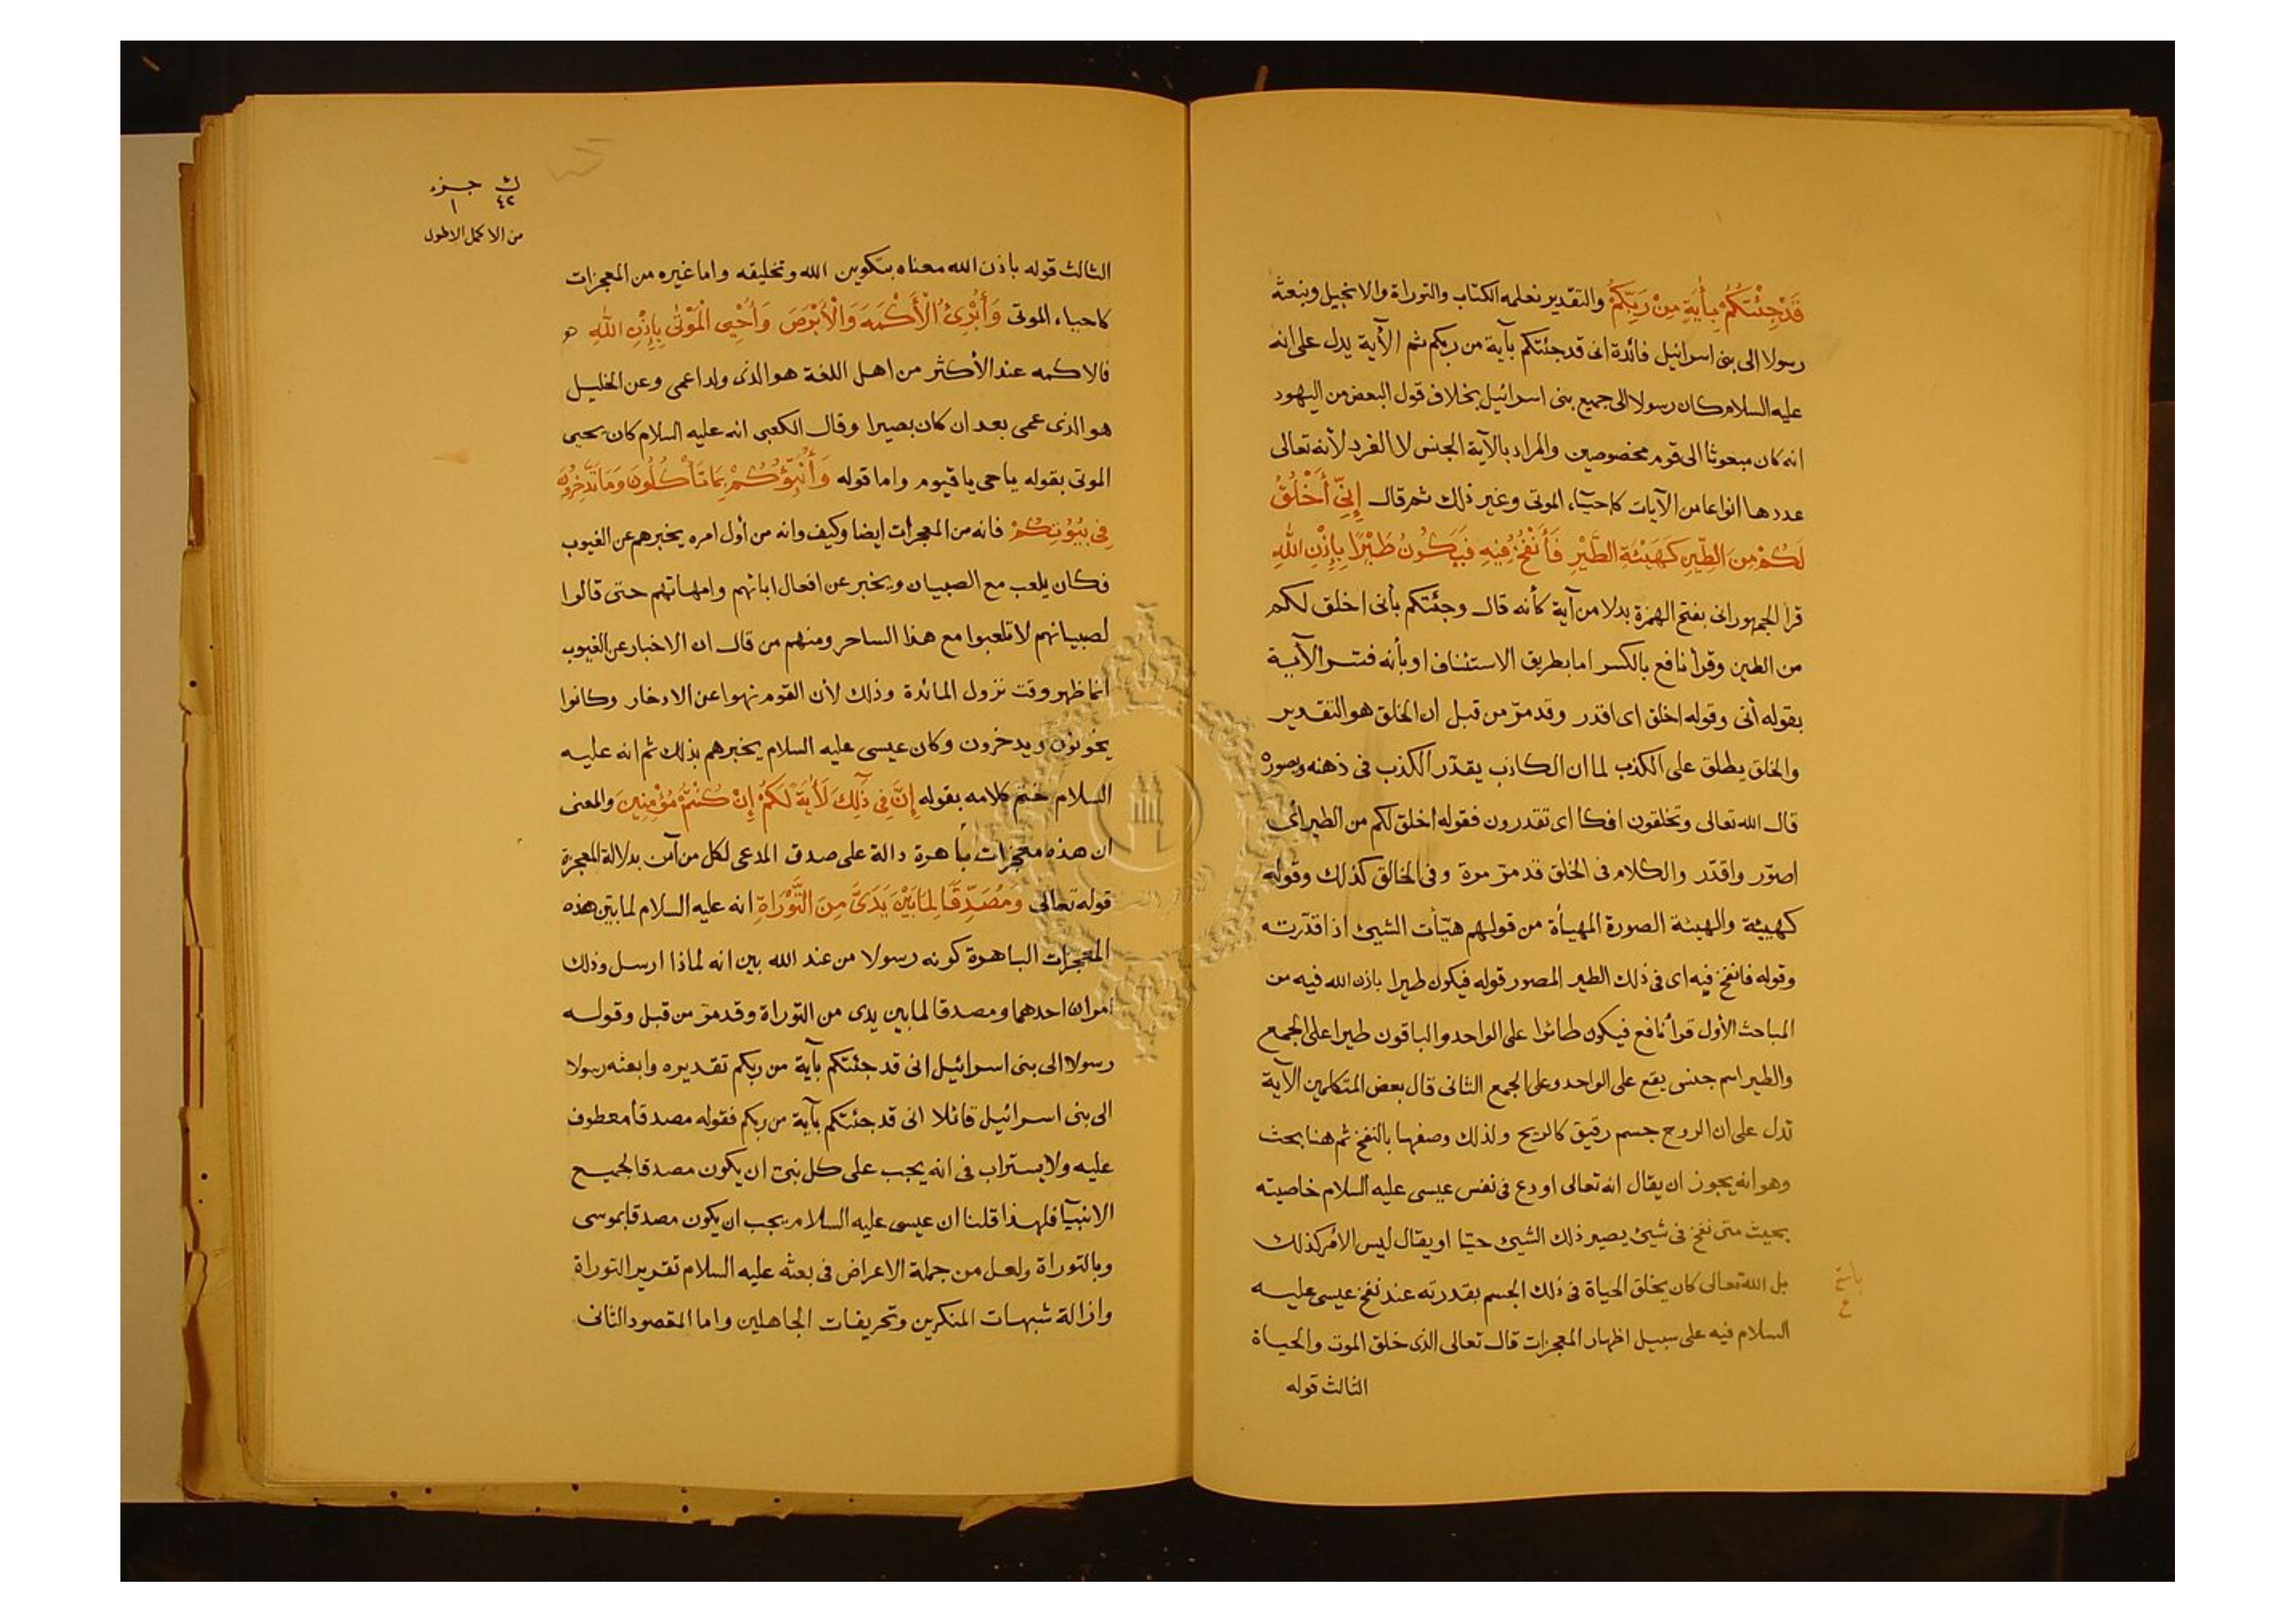 قَدْ جِئْتُكُمْ بِأٰيَةٍ مِنْ رَبِّكُمْ والتقدير نعلمه الكتاب والتوراة والانجيل ونبعثه
رسولا الى بنى اسرائيل فائدة انى قد جئتكم بآية من ربكم ثم الأية يدل على انه
عليه السلام كان رسولا الى جميع بنى اسرائيل بخلاف قول البعض من اليهود
انه كان مبعوثا الى قوم مخصوصين والمراد بالآية الجنس لا الفرد لأنه تعالى
عدد ها انواعا من الآيات كاحياء الموتى وغير ذلك ثم قال إِنِّى أَخْلُقُ
لَكُمْ مِنَ الطِّينِ كَهَيْئَةِ الطَّيْرِ فَأَنْفُخُ فِيهِ فَيَكُونُ طَيْرًا بِإِذْنِ اللّٰهِ
قرا الجمهور انى بفتح الهمزة بدلا من آية كأنه قال وجئتكم بأنى اخلق لكم
من الطين وقرأ نافع بالكسر اما بطريق الاستئناف او بأنه فسر الآية
بقوله أنى وقوله اخلق اى اقدر وقد مرّ من قبل ان الخلق هو التقدير
والخلق يطلق على الكذب لما ان الكاذب يقدّر الكذب فى ذهنه ويصوره
قال الله تعالى وتخلقون افكا اى تقدرون فقوله اخلق لكم من الطير أى
اصوّر واقدّر والكلام فى الخلق قد مرّ مرة وفى الخالق كذلك وقوله
كهيئة والهيئة الصورة المهيأة من قولهم هيّأت الشيئ اذا قدّرته
وقوله فانفخ فيه اى فى ذلك الطير المصور قوله فيكون طيرا باذن الله فيه من
المباحث الأول قرأ نافع فيكون طائرا على الواحد والباقون طيرا على الجمع
والطير اسم جنس يقع على الواحد وعلى الجمع الثانى قال بعض المتكلمين الآية
تدل على ان الروح جسم رقيق كالريح ولذلك وصفها بالنفخ ثم هنا بحث
وهو انه يجوز ان يقال انه تعالى اودع فى نفس عيسى عليه السلام خاصيته
بحيث متى نفخ فى شيئ يصير ذلك الشيئ حيّا او يقال ليس الأمر كذلك
بل الله تعالى كان يخلق الحياة فى ذلك الجسم بقدرته عند نفخ عيسى عليه
السلام فيه على سبيل اظهار المعجزات قال تعالى الذى خلق الموت والحياة
الثالث قوله
ك جزء
٤٢ ١
من الاكمل الاطول
الثالث قوله باذن الله معناه بتكوين الله وتخليقه واما غيره من المعجزات
كاحياء الموتى وَأُبْرِئُ الْأَكْمَهَ وَالْأَبْرَصَ وَأُحْيِى الْمَوْتٰى بِإِذْنِ اللّٰهِ
فالاكمه عند الأكثر من اهل اللغة هو الذى ولد اعمى وعن الخليل
هو الذى عمى بعد ان كان بصيرا وقال الكعبى انه عليه السلام كان يحيى
الموتى بقوله يا حى يا قيوم واما قوله وَأُنَبِّئُكُمْ بِمَا تَأْكُلُونَ وَمَا تَدَّخِرُونَ
فِى بُيُوتِكُمْ فانه من المعجزات ايضا وكيف وانه من أول امره يخبرهم عن الغيوب
فكان يلعب مع الصبيان ويخبر عن افعال ابائهم وامهاتهم حتى قالوا
لصبيانهم لا تلعبوا مع هذا الساحر ومنهم من قال ان الاخبار عن الغيوب
انما ظهر وقت نزول المائدة وذلك لأن القوم نهوا عن الادخار وكانوا
يخونون ويدخرون وكان عيسى عليه السلام يخبرهم بذلك ثم انه عليه
السلام ختم كلامه بقوله إِنَّ فِى ذٰلِكَ لَأٰيَةً لَكُمْ إِنْ كُنْتُمْ مُؤْمِنِينَ والمعنى
ان هذه معجزات باهرة دالة على صدق المدعى لكل من آمن بدلالة المعجزة
قوله تعالى وَمُصَدِّقًا لِمَا بَيْنَ يَدَىَّ مِنَ التَّوْرٰاةِ انه عليه السلام لما بيّن هذه
المعجزات الباهرة كونه رسولا من عند الله بين انه لماذا ارسل وذلك
امران احدهما ومصدقا لما بين يدى من التوراة وقد مرّ من قبل وقوله
رسولا الى بنى اسرائيل انى قد جئتكم بآية من ربكم تقديره وابعثه رسولا
الى بنى اسرائيل قائلا انى قد جئتكم بآية من ربكم فقوله مصدقا معطوف
عليه ولا يستراب فى انه يجب على كل نبى ان يكون مصدقا لجميع
الانبيآ فلهذا قلنا ان عيسى عليه السلام يجب ان يكون مصدقا بموسى
وبالتوراة ولعل من جملة الاعراض فى بعثه عليه السلام تقرير التوراة
وازالة شبهات المنكرين وتحريفات الجاهلين واما المقصود الثانى